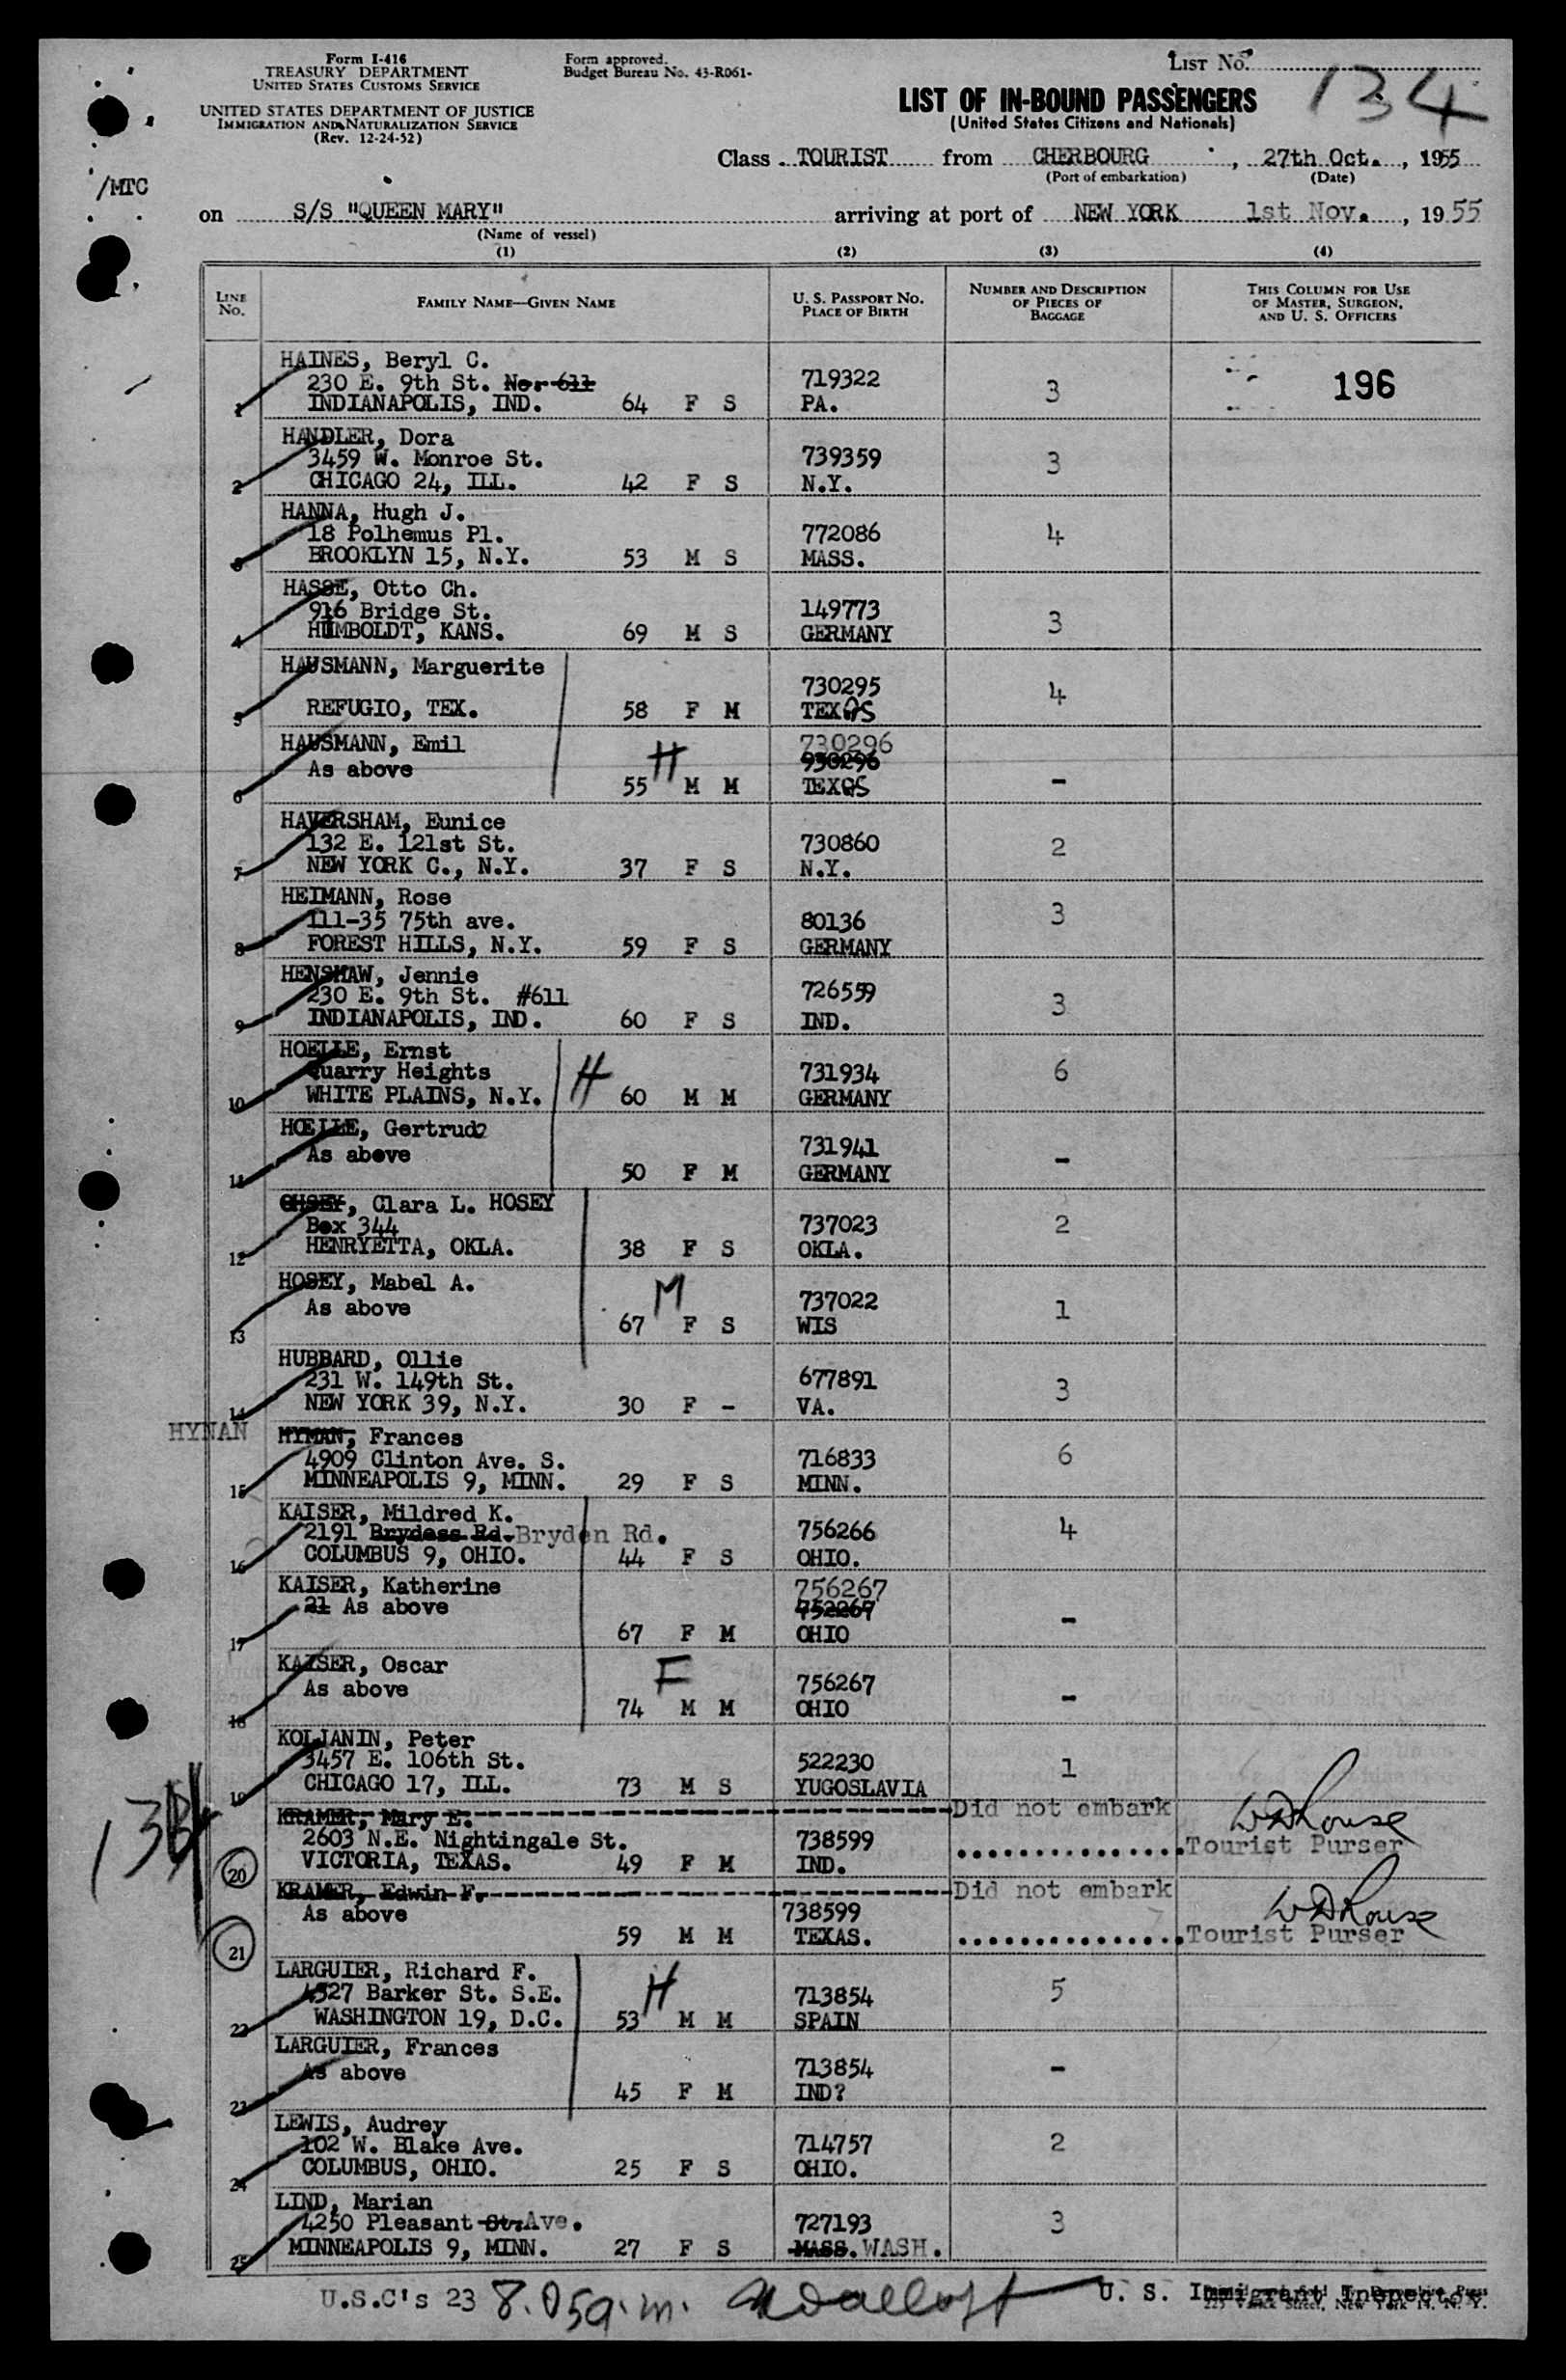 Form I-416
TREASURY DEPARTMENT
UNITED STATES CUSTOMS SERVICE
UNITED STATES DEPARTMENT OF JUSTICE
IMMIGRATION AND NATURALIZATION SERVICE
(Rev. 12-24-52)
Form approved.
Budget Bureau No. 43-R061-
LIST No. 134
LIST OF IN-BOUND PASSENGERS
(United States Citizens and Nationals)
Class TOURIST from CHERBOURG, 27th Oct., 1955
(Port of embarkation) (Date)
/MTC
on S/S "QUEEN MARY" arriving at port of NEW YORK 1st Nov., 1955
(Name of vessel)
(1) (2) (3) (4)
LINE No.
FAMILY NAME—GIVEN NAME
U. S. PASSPORT NO.
PLACE OF BIRTH
NUMBER AND DESCRIPTION
OF PIECES OF
BAGGAGE
THIS COLUMN FOR USE
OF MASTER, SURGEON,
AND U. S. OFFICERS
HAINES, Beryl C.
230 E. 9th St. No. 611 719322 3 196
1 INDIANAPOLIS, IND. 64 F S PA.
HANDLER, Dora
3459 W. Monroe St. 739359 3
2 CHICAGO 24, ILL. 42 F S N.Y.
HANNA, Hugh J.
18 Polhemus Pl. 772086 4
3 BROOKLYN 15, N.Y. 53 M S MASS.
HASSE, Otto Ch.
916 Bridge St. 149773 3
4 HUMBOLDT, KANS. 69 M S GERMANY
HAUSMANN, Marguerite
730295 4
5 REFUGIO, TEX. 58 F M TEXAS
HAUSMANN, Emil 730296
As above H 930296
6 55 M M TEXAS -
HAVERSHAM, Eunice
132 E. 121st St. 730860 2
7 NEW YORK C., N.Y. 37 F S N.Y.
HEIMANN, Rose
111-35 75th ave. 80136 3
8 FOREST HILLS, N.Y. 59 F S GERMANY
HENSHAW, Jennie
230 E. 9th St. #611 726559 3
9 INDIANAPOLIS, IND. 60 F S IND.
HOELLE, Ernst
Quarry Heights H 731934 6
10 WHITE PLAINS, N.Y. 60 M M GERMANY
HOELLE, Gertrud
As above 731941 -
11 50 F M GERMANY
OHSEY, Clara L. HOSEY
Box 344 737023 2
12 HENRYETTA, OKLA. 38 F S OKLA.
HOSEY, Mabel A.
As above M 737022 1
13 67 F S WIS
HUBBARD, Ollie
231 W. 149th St. 677891 3
14 NEW YORK 39, N.Y. 30 F - VA.
HYNAN HYMAN, Frances
4909 Clinton Ave. S. 716833 6
15 MINNEAPOLIS 9, MINN. 29 F S MINN.
KAISER, Mildred K.
2191 Brydess Rd. Bryden Rd. 756266 4
16 COLUMBUS 9, OHIO. 44 F S OHIO.
KAISER, Katherine 756267
21 As above 752267
17 67 F M OHIO -
KAISER, Oscar F
As above 756267 -
18 74 M M OHIO
KOLJANIN, Peter
3457 E. 106th St. 522230 1
19 CHICAGO 17, ILL. 73 M S YUGOSLAVIA
KRAMER, Mary E. Did not embark
2603 N.E. Nightingale St. 738599 Tourist Purser
20 VICTORIA, TEXAS. 49 F M IND.
KRAMER, Edwin F. Did not embark
As above 738599
21 59 M M TEXAS. Tourist Purser
LARGUIER, Richard F.
4527 Barker St. S.E. H 713854 5
22 WASHINGTON 19, D.C. 53 M M SPAIN
LARGUIER, Frances
As above 713854 -
23 45 F M IND?
LEWIS, Audrey
102 W. Blake Ave. 714757 2
24 COLUMBUS, OHIO. 25 F S OHIO.
LIND, Marian
4250 Pleasant St. Ave. 727193 3
25 MINNEAPOLIS 9, MINN. 27 F S MASS. WASH.
U.S.C's 23 U. S. Immigrant Inspector